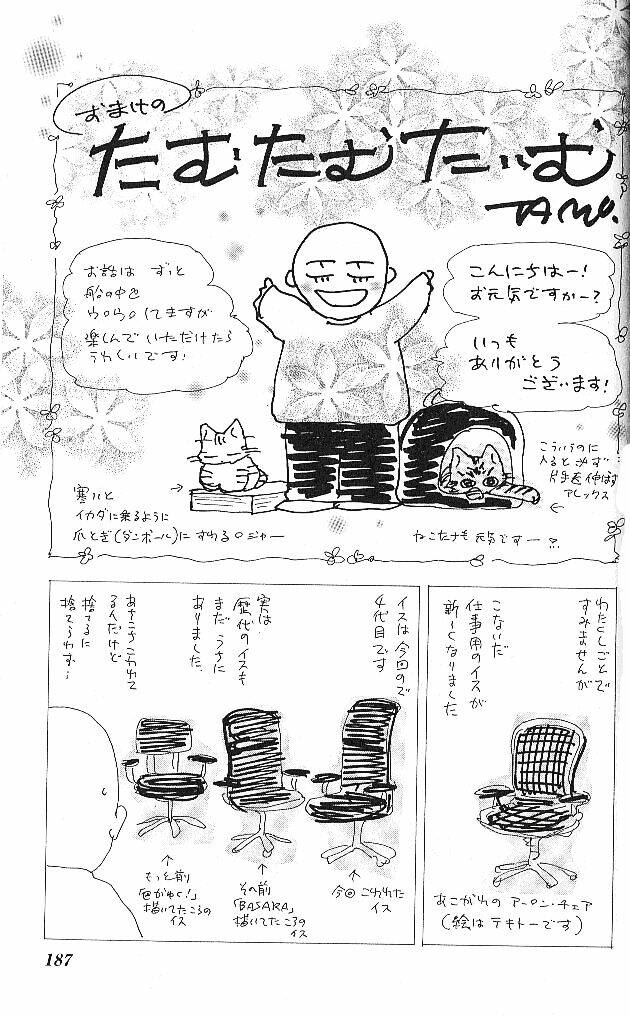 おまけの
たむたむたいむ
TAMU.
こんにちはー!
お元気ですかー?
いつも
ありがとう
ございます!
お話は ずっと
船の中で
ウロウロしてますが
楽しんでいただけたら
うれしいです!
こういうのに
入ると必ず
片手を伸ばす
アレックス
ねこたちも 元気ですー
寒いと
イカダに乗るように
爪とぎ(ダンボール)に すわるロジャー
わたくしごとで
すみませんが
こないだ
仕事用のイスが
新しくなりました
あこがれの アーロン・チェア
(絵は テキトーです)
イスは今回ので
4代目です
実は
歴代のイスも
まだ うちに
ありました
あちこちこわれて
るんだけど
捨てるに
捨てられず…
今回 こわれた
イス
その前
「BASARA」
描いてたころの
イス
もっと前
描いてたころの
イス
187